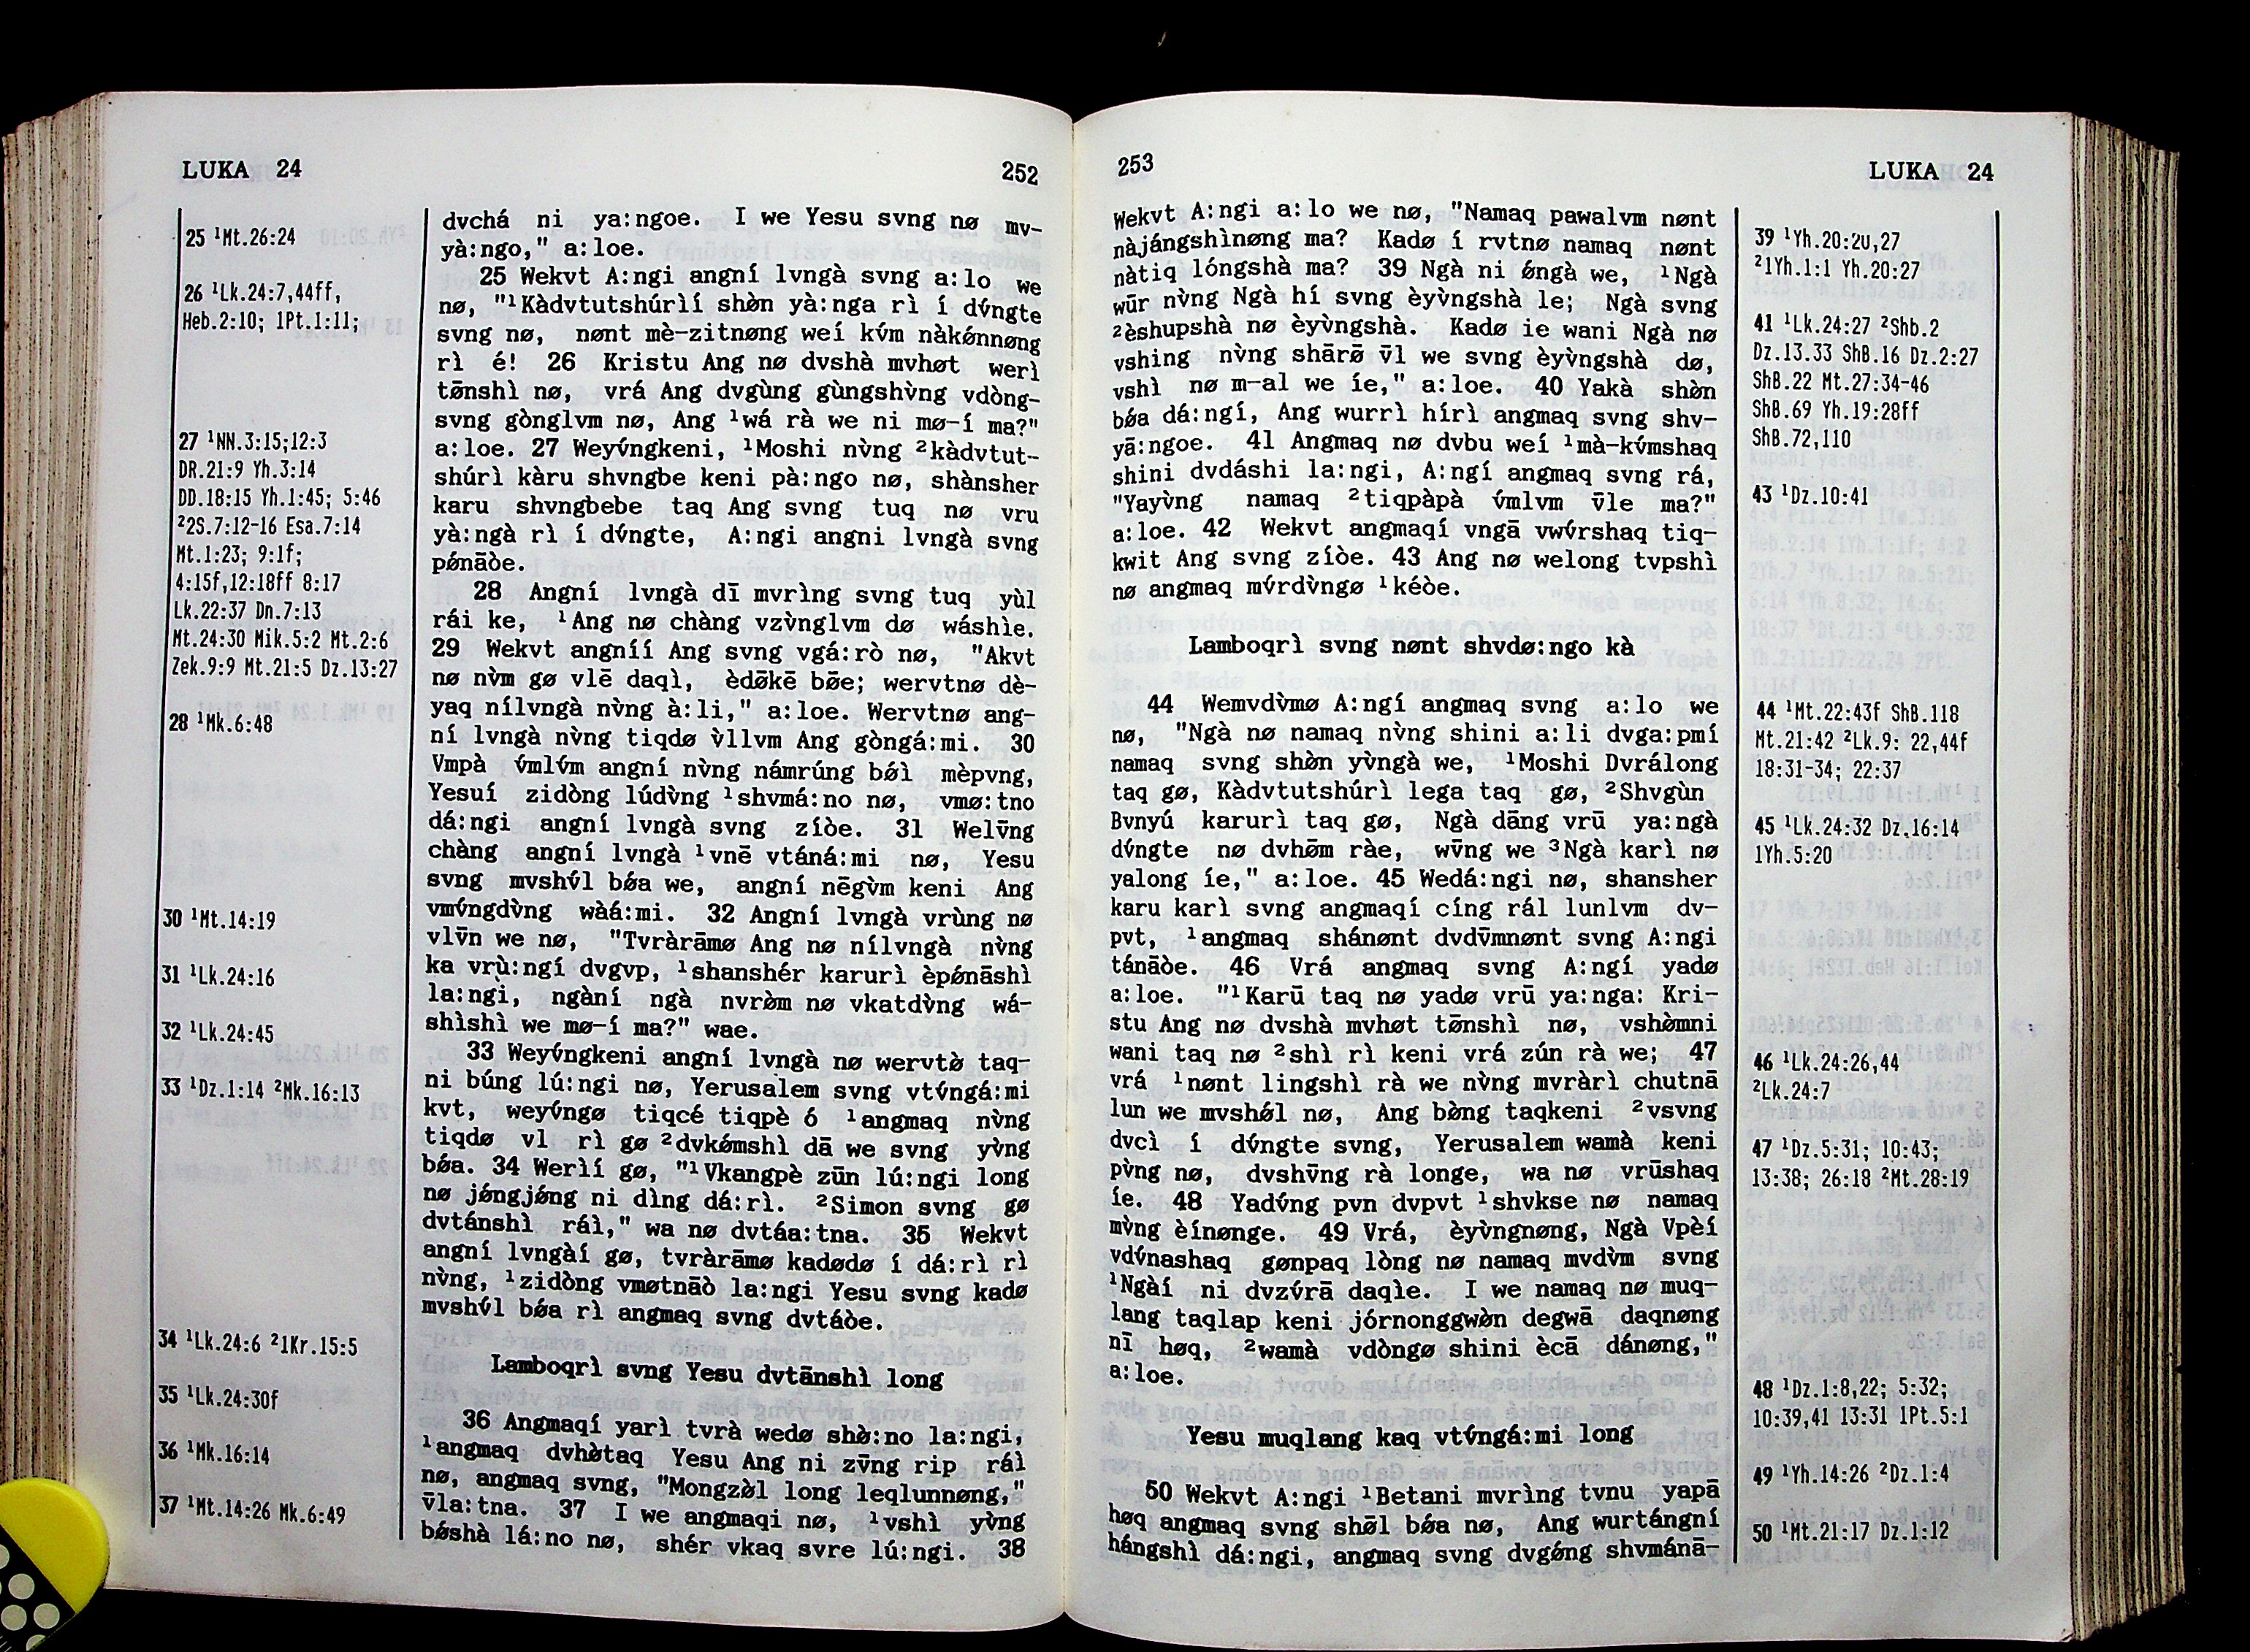 LUKA 24
252
25 ¹Mt.26:24
26 ¹Lk.24:7,44ff,
Heb.2:10; 1Pt.1:11;
27 ¹NN.3:15;12:3
DR.21:9 Yh.3:14
DD.18:15 Yh.1:45; 5:46
²2S.7:12-16 Esa.7:14
Mt.1:23; 9:1f;
4:15f,12:18ff 8:17
Lk.22:37 Dn.7:13
Mt.24:30 Mik.5:2 Mt.2:6
Zek.9:9 Mt.21:5 Dz.13:27
28 ¹Mk.6:48
30 ¹Mt.14:19
31 ¹Lk.24:16
32 ¹Lk.24:45
33 ¹Dz.1:14 ²Mk.16:13
34 ¹Lk.24:6 ²1Kr.15:5
35 ¹Lk.24:30f
36 ¹Mk.16:14
37 ¹Mt.14:26 Mk.6:49
dvchá ni ya:ngoe. I we Yesu svng nø mv-
yà:ngo," a:loe.
25 Wekvt A:ngi angní lvngà svng a:lo we
nø, "¹Kàdvtutshúrìí shø̀n yà:nga rì í dv́ngte
svng nø, nønt mè-zitnøng weí kv́m nàkǿnnøng
rì é! 26 Kristu Ang nø dvshà mvhøt werì
tø̄nshì nø, vrá Ang dvgùng gùngshv̀ng vdòng-
svng gònglvm nø, Ang ¹wá rà we ni mø-í ma?"
a:loe. 27 Weyv́ngkeni, ¹Moshi nv̀ng ²kàdvtut-
shúrì kàru shvngbe keni pà:ngo nø, shànsher
karu shvngbebe taq Ang svng tuq nø vru
yà:ngà rì í dv́ngte, A:ngi angni lvngà svng
pǿnāòe.
28 Angní lvngà dī mvrìng svng tuq yùl
rái ke, ¹Ang nø chàng vzv̀nglvm dø wáshìe.
29 Wekvt angníí Ang svng vgá:rò nø, "Akvt
nø nv̀m gø vlē daqì, èdø̄kē bø̄e; wervtnø dè-
yaq nílvngà nv̀ng à:li," a:loe. Wervtnø ang-
ní lvngà nv̀ng tiqdø v̀llvm Ang gòngá:mi. 30
Vmpà v́mlv́m angní nv̀ng námrúng bǿì mèpvng,
Yesuí zidòng lúdv̀ng ¹shvmá:no nø, vmø:tno
dá:ngi angní lvngà svng zíòe. 31 Welv̄ng
chàng angní lvngà ¹vnē vtáná:mi nø, Yesu
svng mvshv́l bǿa we, angní nēgv̀m keni Ang
vmv́ngdv̀ng wàá:mi. 32 Angní lvngà vrùng nø
vlv̄n we nø, "Tvràrāmø Ang nø nílvngà nv̀ng
ka vrù:ngí dvgvp, ¹shanshér karurì èpǿnāshì
la:ngi, ngàní ngà nvrø̀m nø vkatdv̀ng wá-
shìshì we mø-í ma?" wae.
33 Weyv́ngkeni angní lvngà nø wervtø̀ taq-
ni búng lú:ngi nø, Yerusalem svng vtv́ngá:mi
kvt, weyv́ngø tiqcé tiqpè ó ¹angmaq nv̀ng
tiqdø vl rì gø ²dvkǿmshì dā we svng yv̀ng
bǿa. 34 Werìí gø, "¹Vkangpè zūn lú:ngi long
nø jǿngjǿng ni dìng dá:rì. ²Simon svng gø
dvtánshì ráì," wa nø dvtáa:tna. 35 Wekvt
angní lvngàí gø, tvràrāmø kadødø í dá:rì rì
nv̀ng, ¹zidòng vmøtnāò la:ngi Yesu svng kadø
mvshv́l bǿa rì angmaq svng dvtáòe.
Lamboqrì svng Yesu dvtānshì long
36 Angmaqí yarì tvrà wedø shø̀:no la:ngi,
¹angmaq dvhø̀taq Yesu Ang ni zv̄ng rip ráì
nø, angmaq svng, "Mongzø̀l long leqlunnøng,"
v̄la:tna. 37 I we angmaqi nø, ¹vshì yv̀ng
bǿshà lá:no nø, shér vkaq svre lú:ngi. 38
253
LUKA 24
Wekvt A:ngi a:lo we nø, "Namaq pawalvm nønt
nàjángshìnøng ma? Kadø í rvtnø namaq nønt
nàtiq lóngshà ma? 39 Ngà ni ǿngà we, ¹Ngà
wūr nv̀ng Ngà hí svng èyv̀ngshà le; Ngà svng
²èshupshà nø èyv̀ngshà. Kadø ie wani Ngà nø
vshing nv̀ng shārø̄ v̄l we svng èyv̀ngshà dø,
vshì nø m-al we íe," a:loe. 40 Yakà shø̀n
bǿa dá:ngí, Ang wurrì hírì angmaq svng shv-
yā:ngoe. 41 Angmaq nø dvbu weí ¹mà-kv́mshaq
shini dvdáshi la:ngi, A:ngí angmaq svng rá,
"Yayv̀ng namaq ²tiqpàpà v́mlvm v̄le ma?"
a:loe. 42 Wekvt angmaqí vngā vwv́rshaq tiq-
kwit Ang svng zíòe. 43 Ang nø welong tvpshì
nø angmaq mv́rdv̀ngø ¹kéòe.
Lamboqrì svng nønt shvdø:ngo kà
44 Wemvdv̀mø A:ngí angmaq svng a:lo we
nø, "Ngà nø namaq nv̀ng shini a:li dvga:pmí
namaq svng shø̀n yv̀ngà we, ¹Moshi Dvrálong
taq gø, Kàdvtutshúrì lega taq gø, ²Shvgùn
Bvnyú karurì taq gø, Ngà dāng vrū ya:ngà
dv́ngte nø dvhø̄m ràe, wv̄ng we ³Ngà karì nø
yalong íe," a:loe. 45 Wedá:ngi nø, shansher
karu karì svng angmaqí cíng rál lunlvm dv-
pvt, ¹angmaq shánønt dvdv̄mnønt svng A:ngi
tánāòe. 46 Vrá angmaq svng A:ngí yadø
a:loe. "¹Karū taq nø yadø vrū ya:nga: Kri-
stu Ang nø dvshà mvhøt tø̄nshì nø, vshø̀mni
wani taq nø ²shì rì keni vrá zún rà we; 47
vrá ¹nønt lingshì rà we nv̀ng mvràrì chutnā
lun we mvshǿl nø, Ang bø̀ng taqkeni ²vsvng
dvcì í dv́ngte svng, Yerusalem wamà keni
pv̀ng nø, dvshv̄ng rà longe, wa nø vrūshaq
íe. 48 Yadv́ng pvn dvpvt ¹shvkse nø namaq
mv̀ng èínønge. 49 Vrá, èyv̀ngnøng, Ngà Vpèí
vdv́nashaq gønpaq lòng nø namaq mvdv̀m svng
¹Ngàí ni dvzv́rā daqìe. I we namaq nø muq-
lang taqlap keni jórnonggwø̀n degwā daqnøng
nī høq, ²wamà vdòngø shini ècā dánøng,"
a:loe.
Yesu muqlang kaq vtv́ngá:mi long
50 Wekvt A:ngi ¹Betani mvrìng tvnu yapā
høq angmaq svng shø̄l bǿa nø, Ang wurtángní
hángshì dá:ngi, angmaq svng dvgǿng shvmánā-
39 ¹Yh.20:20,27
²1Yh.1:1 Yh.20:27
41 ¹Lk.24:27 ²Shb.2
Dz.13.33 ShB.16 Dz.2:27
ShB.22 Mt.27:34-46
ShB.69 Yh.19:28ff
ShB.72,110
43 ¹Dz.10:41
44 ¹Mt.22:43f ShB.118
Mt.21:42 ²Lk.9: 22,44f
18:31-34; 22:37
45 ¹Lk.24:32 Dz.16:14
1Yh.5:20
46 ¹Lk.24:26,44
²Lk.24:7
47 ¹Dz.5:31; 10:43;
13:38; 26:18 ²Mt.28:19
48 ¹Dz.1:8,22; 5:32;
10:39,41 13:31 1Pt.5:1
49 ¹Yh.14:26 ²Dz.1:4
50 ¹Mt.21:17 Dz.1:12